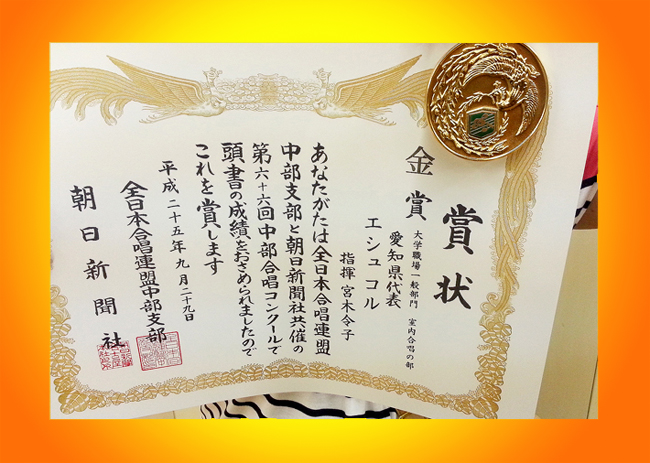 賞状
金賞
大学職場一般部門 室内合唱の部
愛知県代表
エシュコル
指揮 宮木令子
あなたがたは全日本合唱連盟
中部支部と朝日新聞社共催の
第六十六回中部合唱コンクールで
頭書の成績をおさめられましたので
これを賞します
平成二十五年九月二十九日
全日本合唱連盟中部支部
朝日新聞社